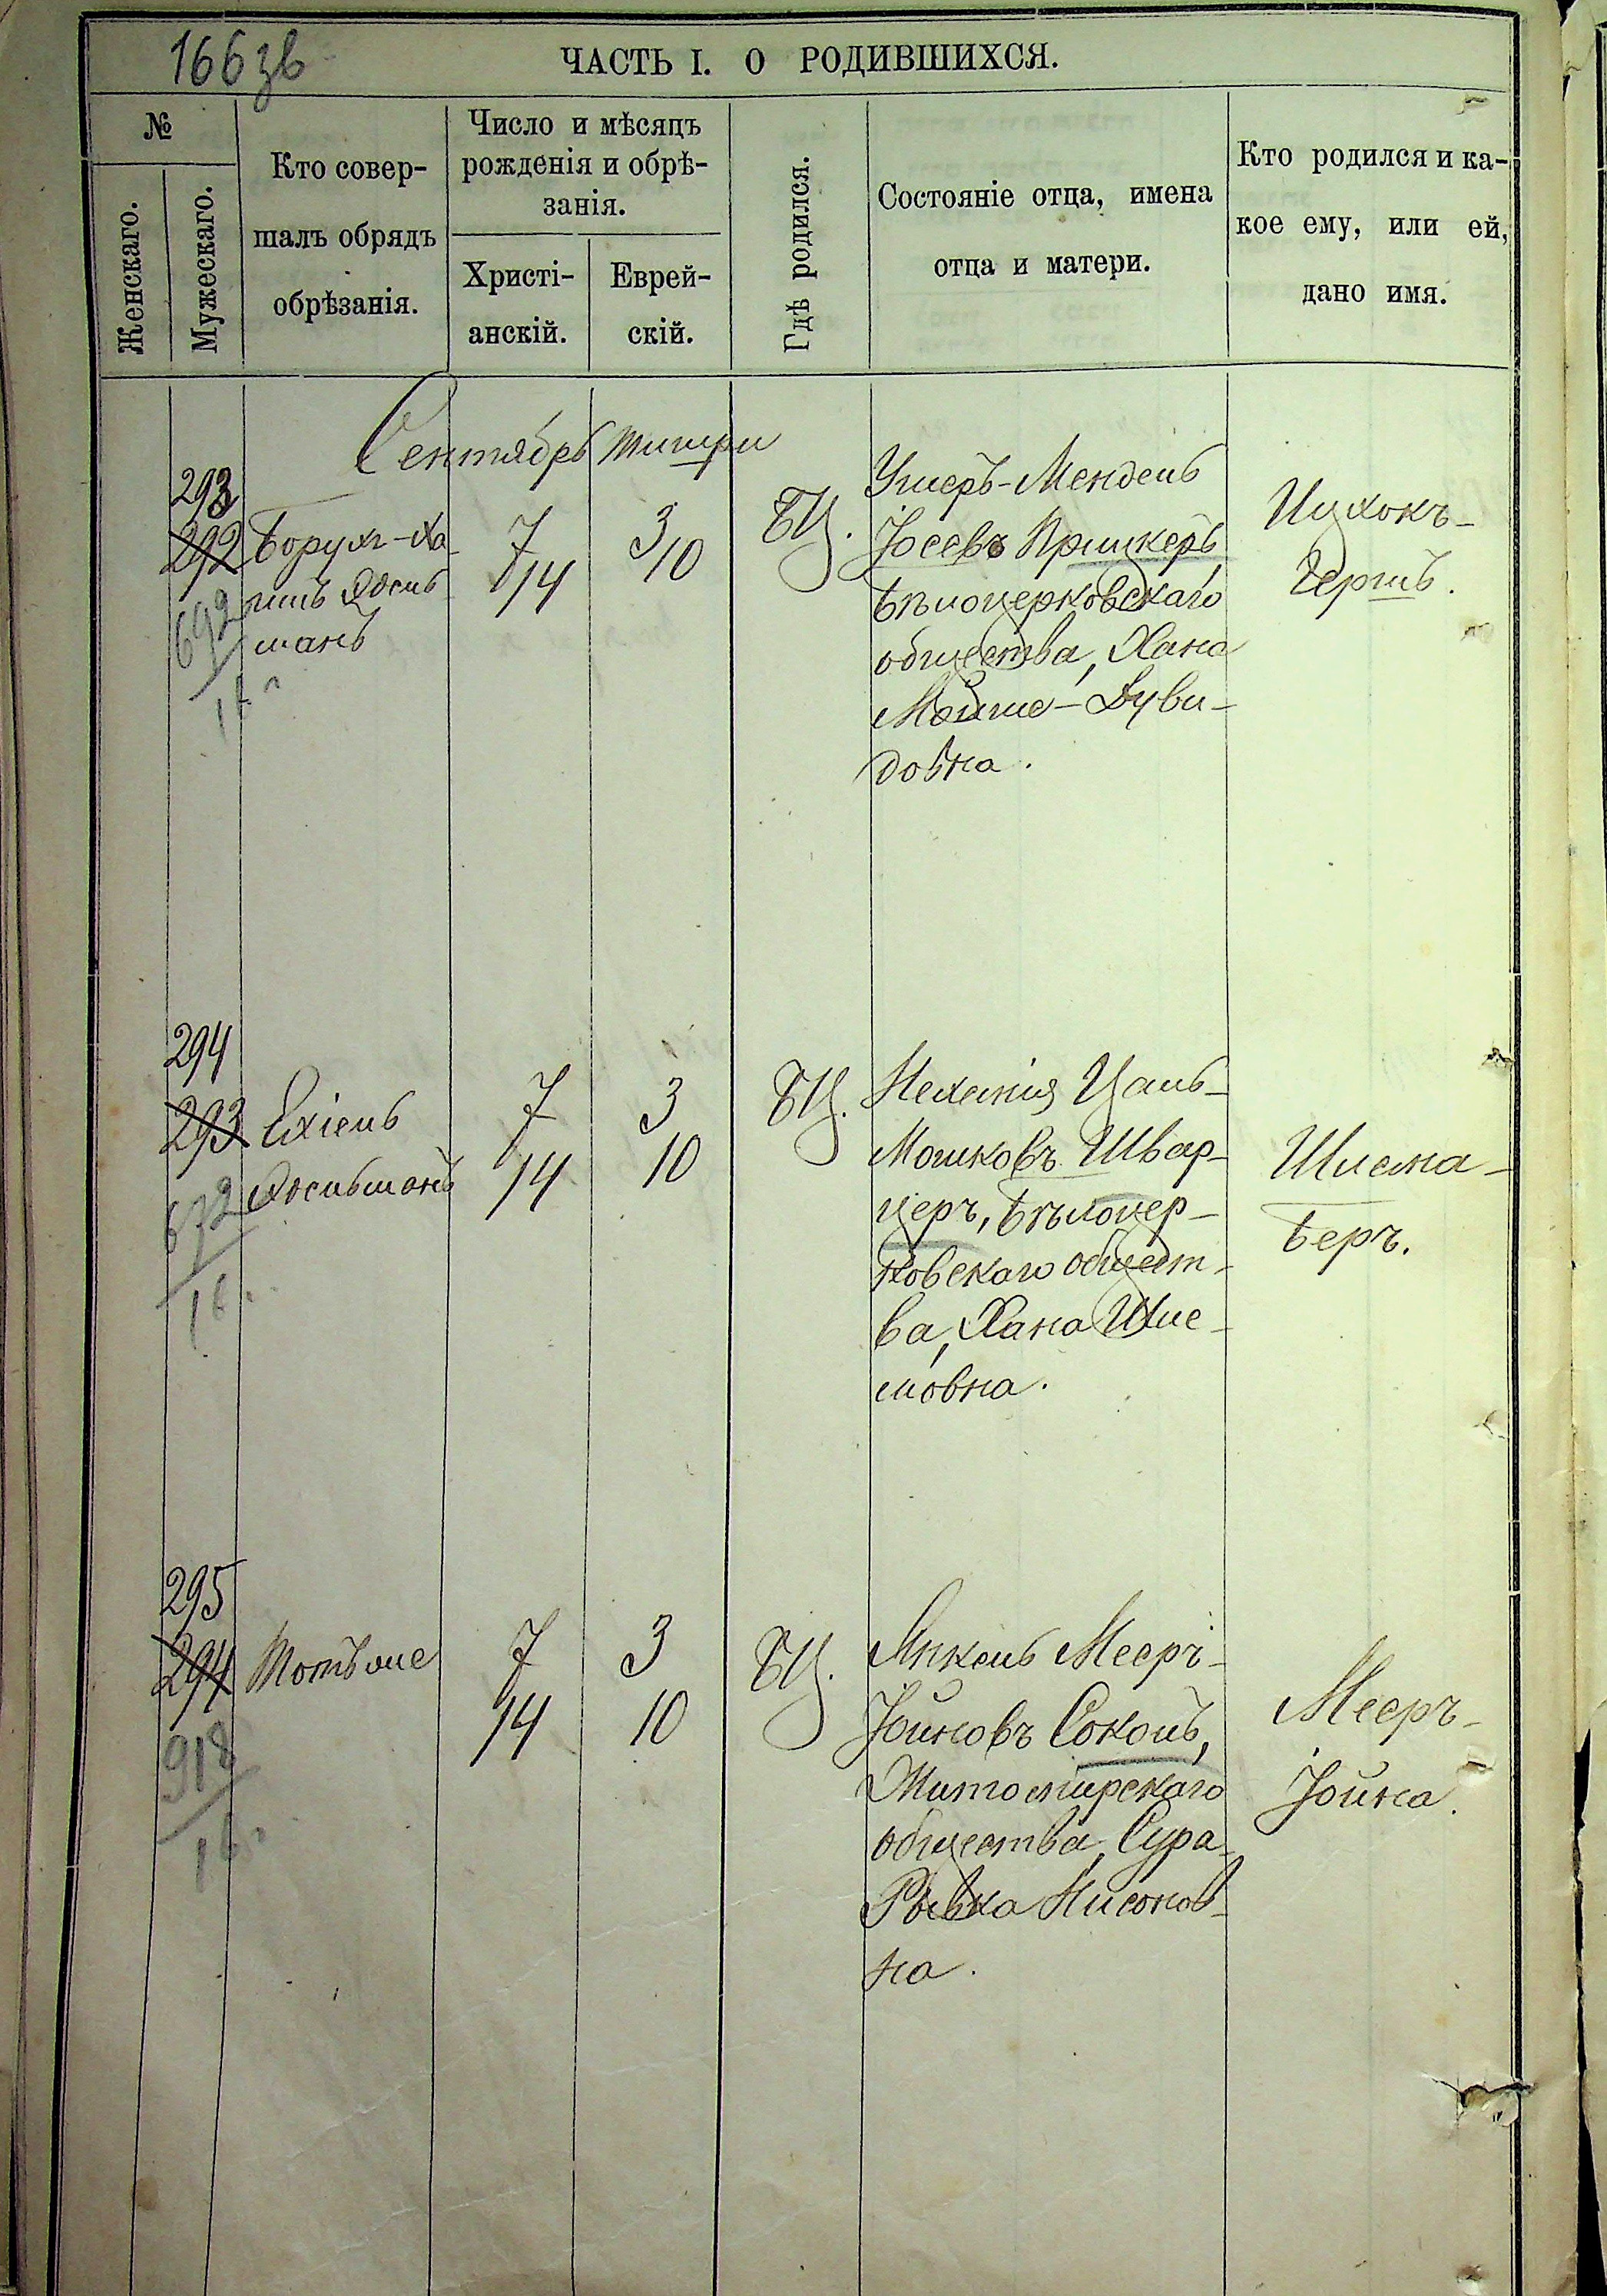 166 зв
ЧАСТЬ I. О РОДИВШИХСЯ.
№
Женскаго.
Мужескаго.
Кто совер-
шалъ обрядъ
обрѣзанія.
Число и мѣсяцъ
рожденія и обрѣ-
занія.
Христі-
анскій.
Еврей-
скій.
Гдѣ родился.
Состояніе отца, имена
отца и матери.
Кто родился и ка-
кое ему, или ей,
дано имя.
Сентябрь Тишри
293
292
Борухъ-Ха-
692
16
7
14
3
10
БЦ.
Ушеръ-Мендель
Іосевъ Прицкеръ,
Бѣлоцерковскаго
общества, Хана
Мойше-Дуви-
довна.
Ицхокъ-
Гершъ.
294
293
Ехіель
672
16.
7
14
3
10
БЦ.
Нехемія Цаль-
Мошковъ Швар-
церъ, Бѣлоцер-
ковскаго общест-
ва, Хана Шле-
мовна.
Шлема-
Беръ.
295
294
918
16.
7
14
3
10
БЦ.
Янкель Мееръ-
Іойновъ Соколъ,
Житомирскаго
общества, Сура-
Рывка Нисонов-
на.
Мееръ-
Іойна.